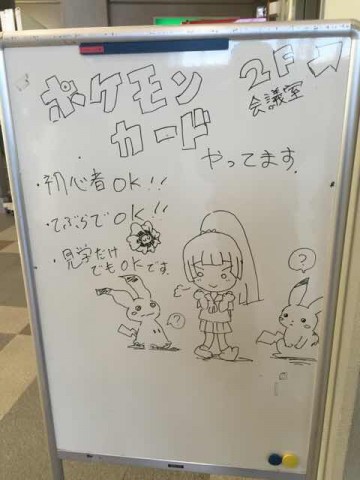 ポケモン
カード
2F
会議室
やってます。
・初心者OK!!
・てぶらでOK!!
・見学だけ
でもOKです。
?
?